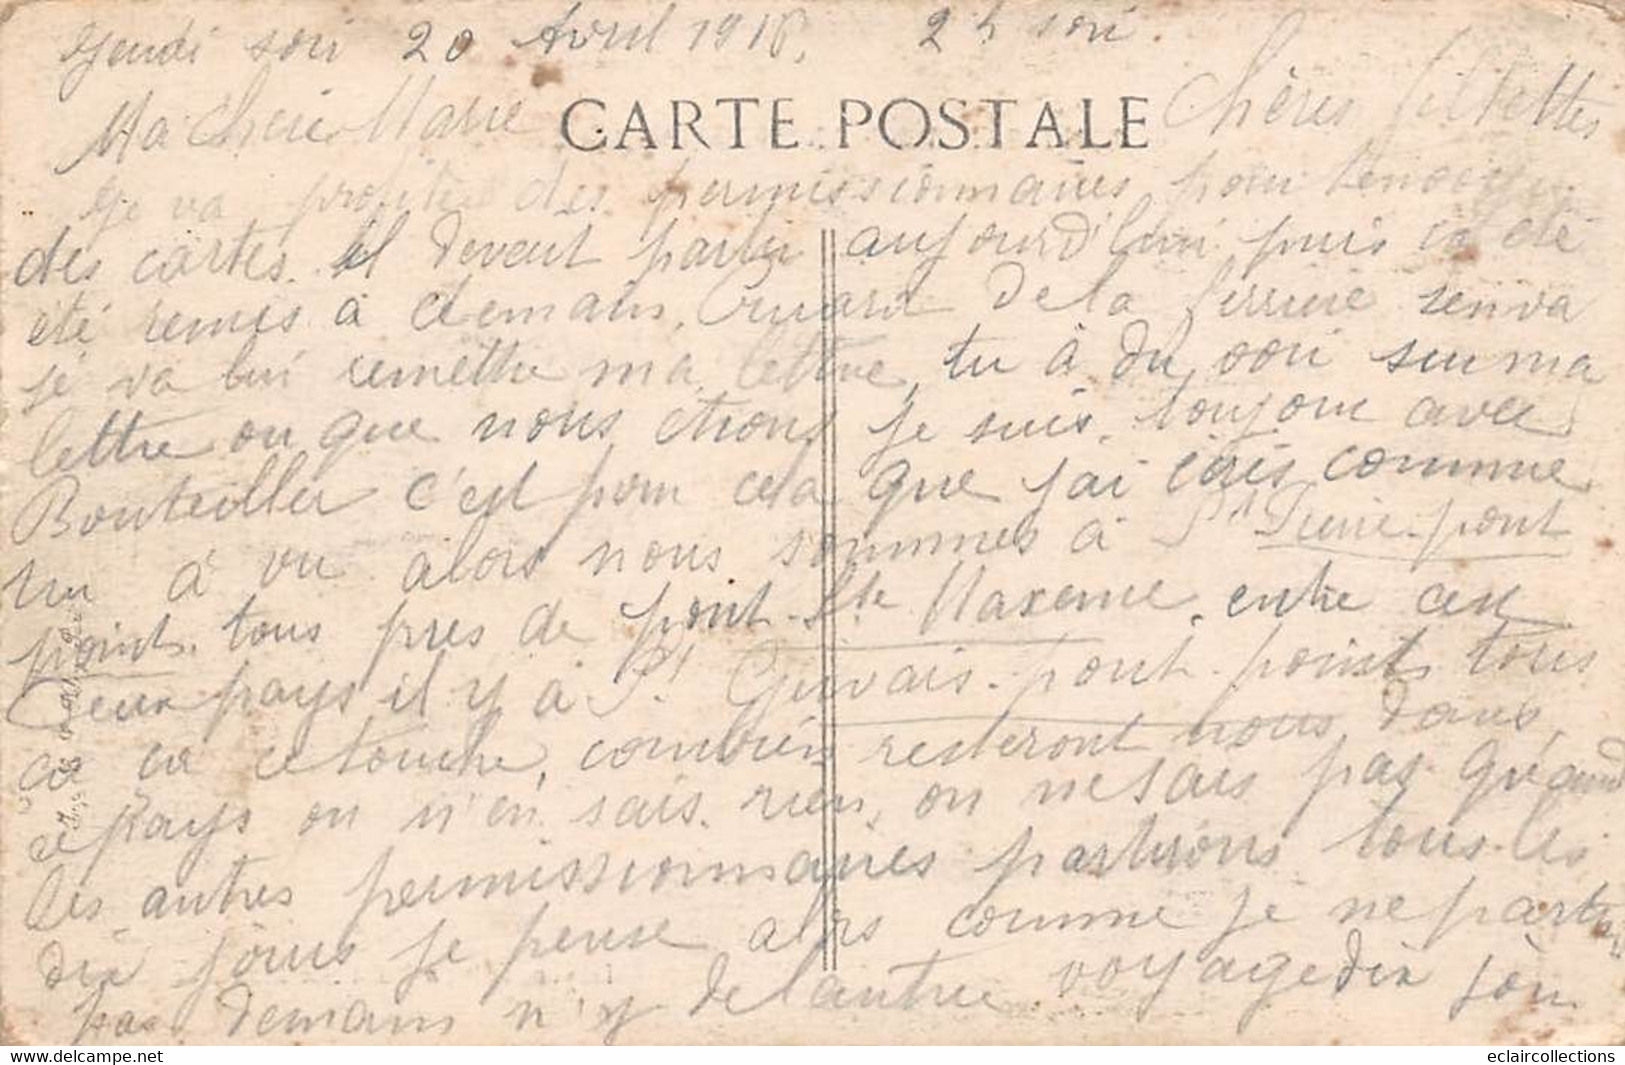 Jeudi soir 20 Avril 1916. 2h soir.
Ma chère Marie Chères fillettes
CARTE POSTALE
Je va profiter des permissionnaires pour
des cartes. il devait partir aujourd'hui puis ça été
été remis à demain, de la Ferrière sen va
je va lui remettre ma lettre, tu à du voir sur ma
lettre ou que nous étions je suis toujour avec
Bouteiller c'est pour cela que jai comme
tu à vu alors nous sommes à St Pierre-pont
point. tous près de pont-Ste Maxeme. entre ces
deux pays il y à St Gervais-pont-point tous
ça ce touche, combien resteront nous dans
ce pays on n'en sais rien, on ne sais pas quand
les autres permissionnaires partirons tous les
dix jours je pense alors comme je ne part
pas demain n'y de lautre voyage dix jour
eclaircollections